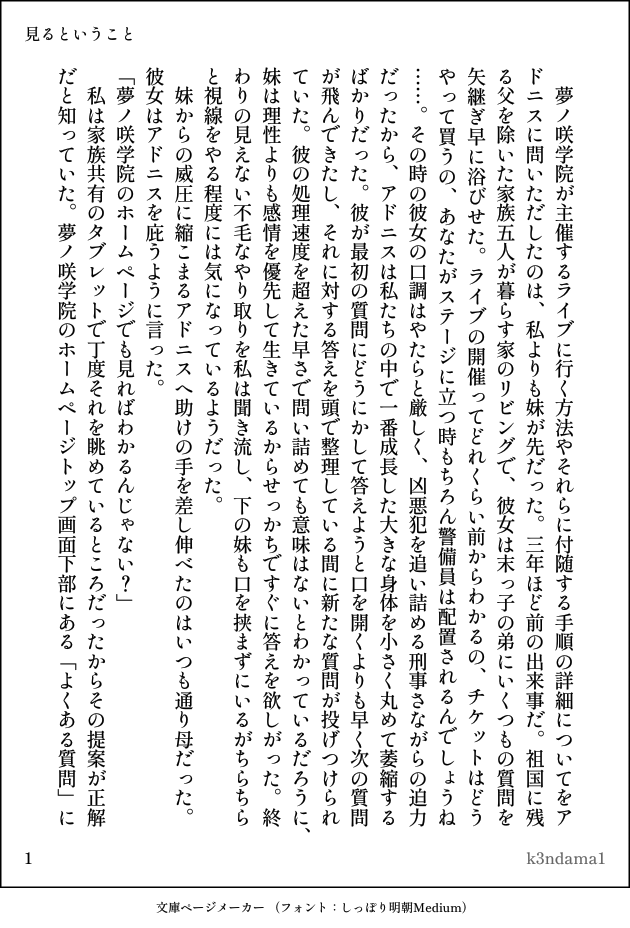 見るということ
　夢ノ咲学院が主催するライブに行く方法やそれらに付随する手順の詳細についてをア
ドニスに問いただしたのは、私よりも妹が先だった。三年ほど前の出来事だ。祖国に残
る父を除いた家族五人が暮らす家のリビングで、彼女は末っ子の弟にいくつもの質問を
矢継ぎ早に浴びせた。ライブの開催ってどれくらい前からわかるの、チケットはどう
やって買うの、あなたがステージに立つ時もちろん警備員は配置されるんでしょうね
……。その時の彼女の口調はやたらと厳しく、凶悪犯を追い詰める刑事さながらの迫力
だったから、アドニスは私たちの中で一番成長した大きな身体を小さく丸めて萎縮する
ばかりだった。彼が最初の質問にどうにかして答えようと口を開くよりも早く次の質問
が飛んできたし、それに対する答えを頭で整理している間に新たな質問が投げつけられ
ていた。彼の処理速度を超えた早さで問い詰めても意味はないとわかっているだろうに、
妹は理性よりも感情を優先して生きているからせっかちですぐに答えを欲しがった。終
わりの見えない不毛なやり取りを私は聞き流し、下の妹も口を挟まずにいるがちらちら
と視線をやる程度には気になっているようだった。
　妹からの威圧に縮こまるアドニスへ助けの手を差し伸べたのはいつも通り母だった。
彼女はアドニスを庇うように言った。
「夢ノ咲学院のホームページでも見ればわかるんじゃない？」
　私は家族共有のタブレットで丁度それを眺めているところだったからその提案が正解
だと知っていた。夢ノ咲学院のホームページトップ画面下部にある「よくある質問」に
1
k3ndama1
文庫ページメーカー （フォント：しっぽり明朝Medium）